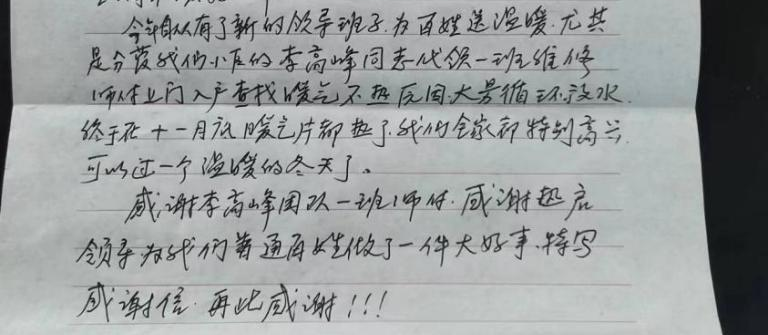 今年自从有了新的领导班子,为百姓送温暖.尤其
是分管我们小区的李高峰同志代领一班维修
师付上门入户查找暖气不热原因,大搞循环放水.
终于在十一月底暖气片都热了.我们全家都特别高兴
可以过一个温暖的冬天了。
感谢李高峰团队一班师付.感谢热启
领导为我们普通百姓做了一件大好事.特写
感谢信.再此感谢!!!